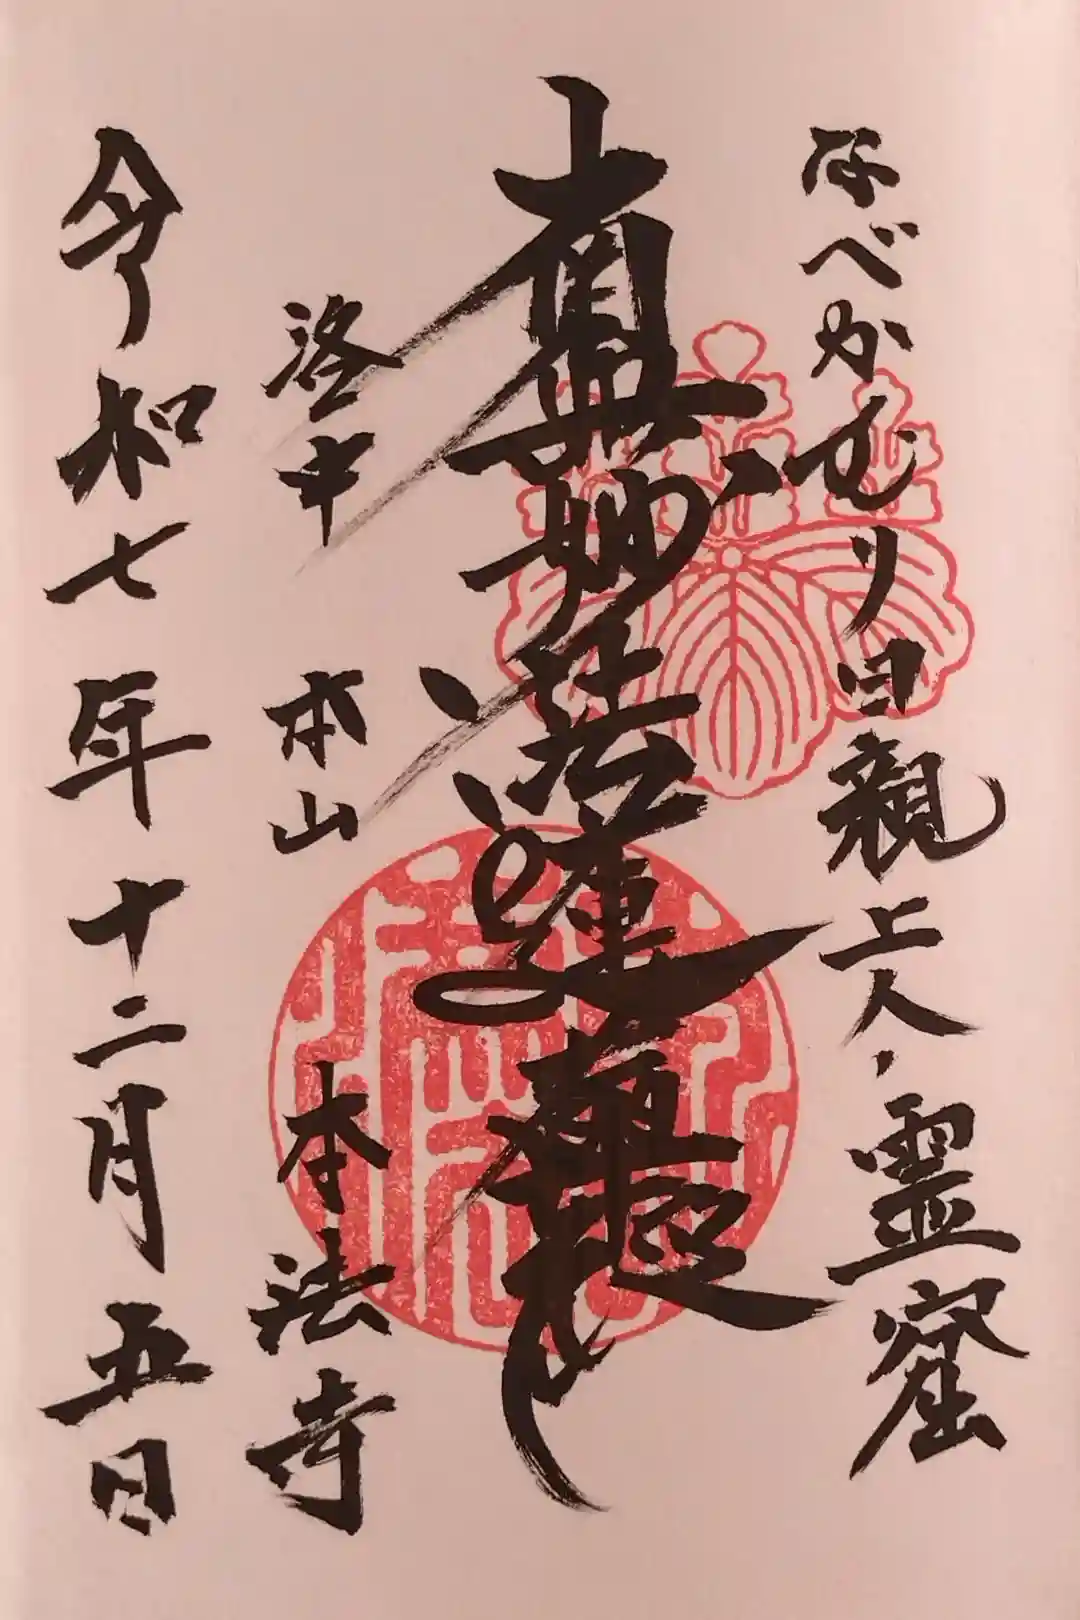 なべかむり日親上人霊窟
南無妙法蓮華経
洛中 本山 本法寺
令和七年十二月五日